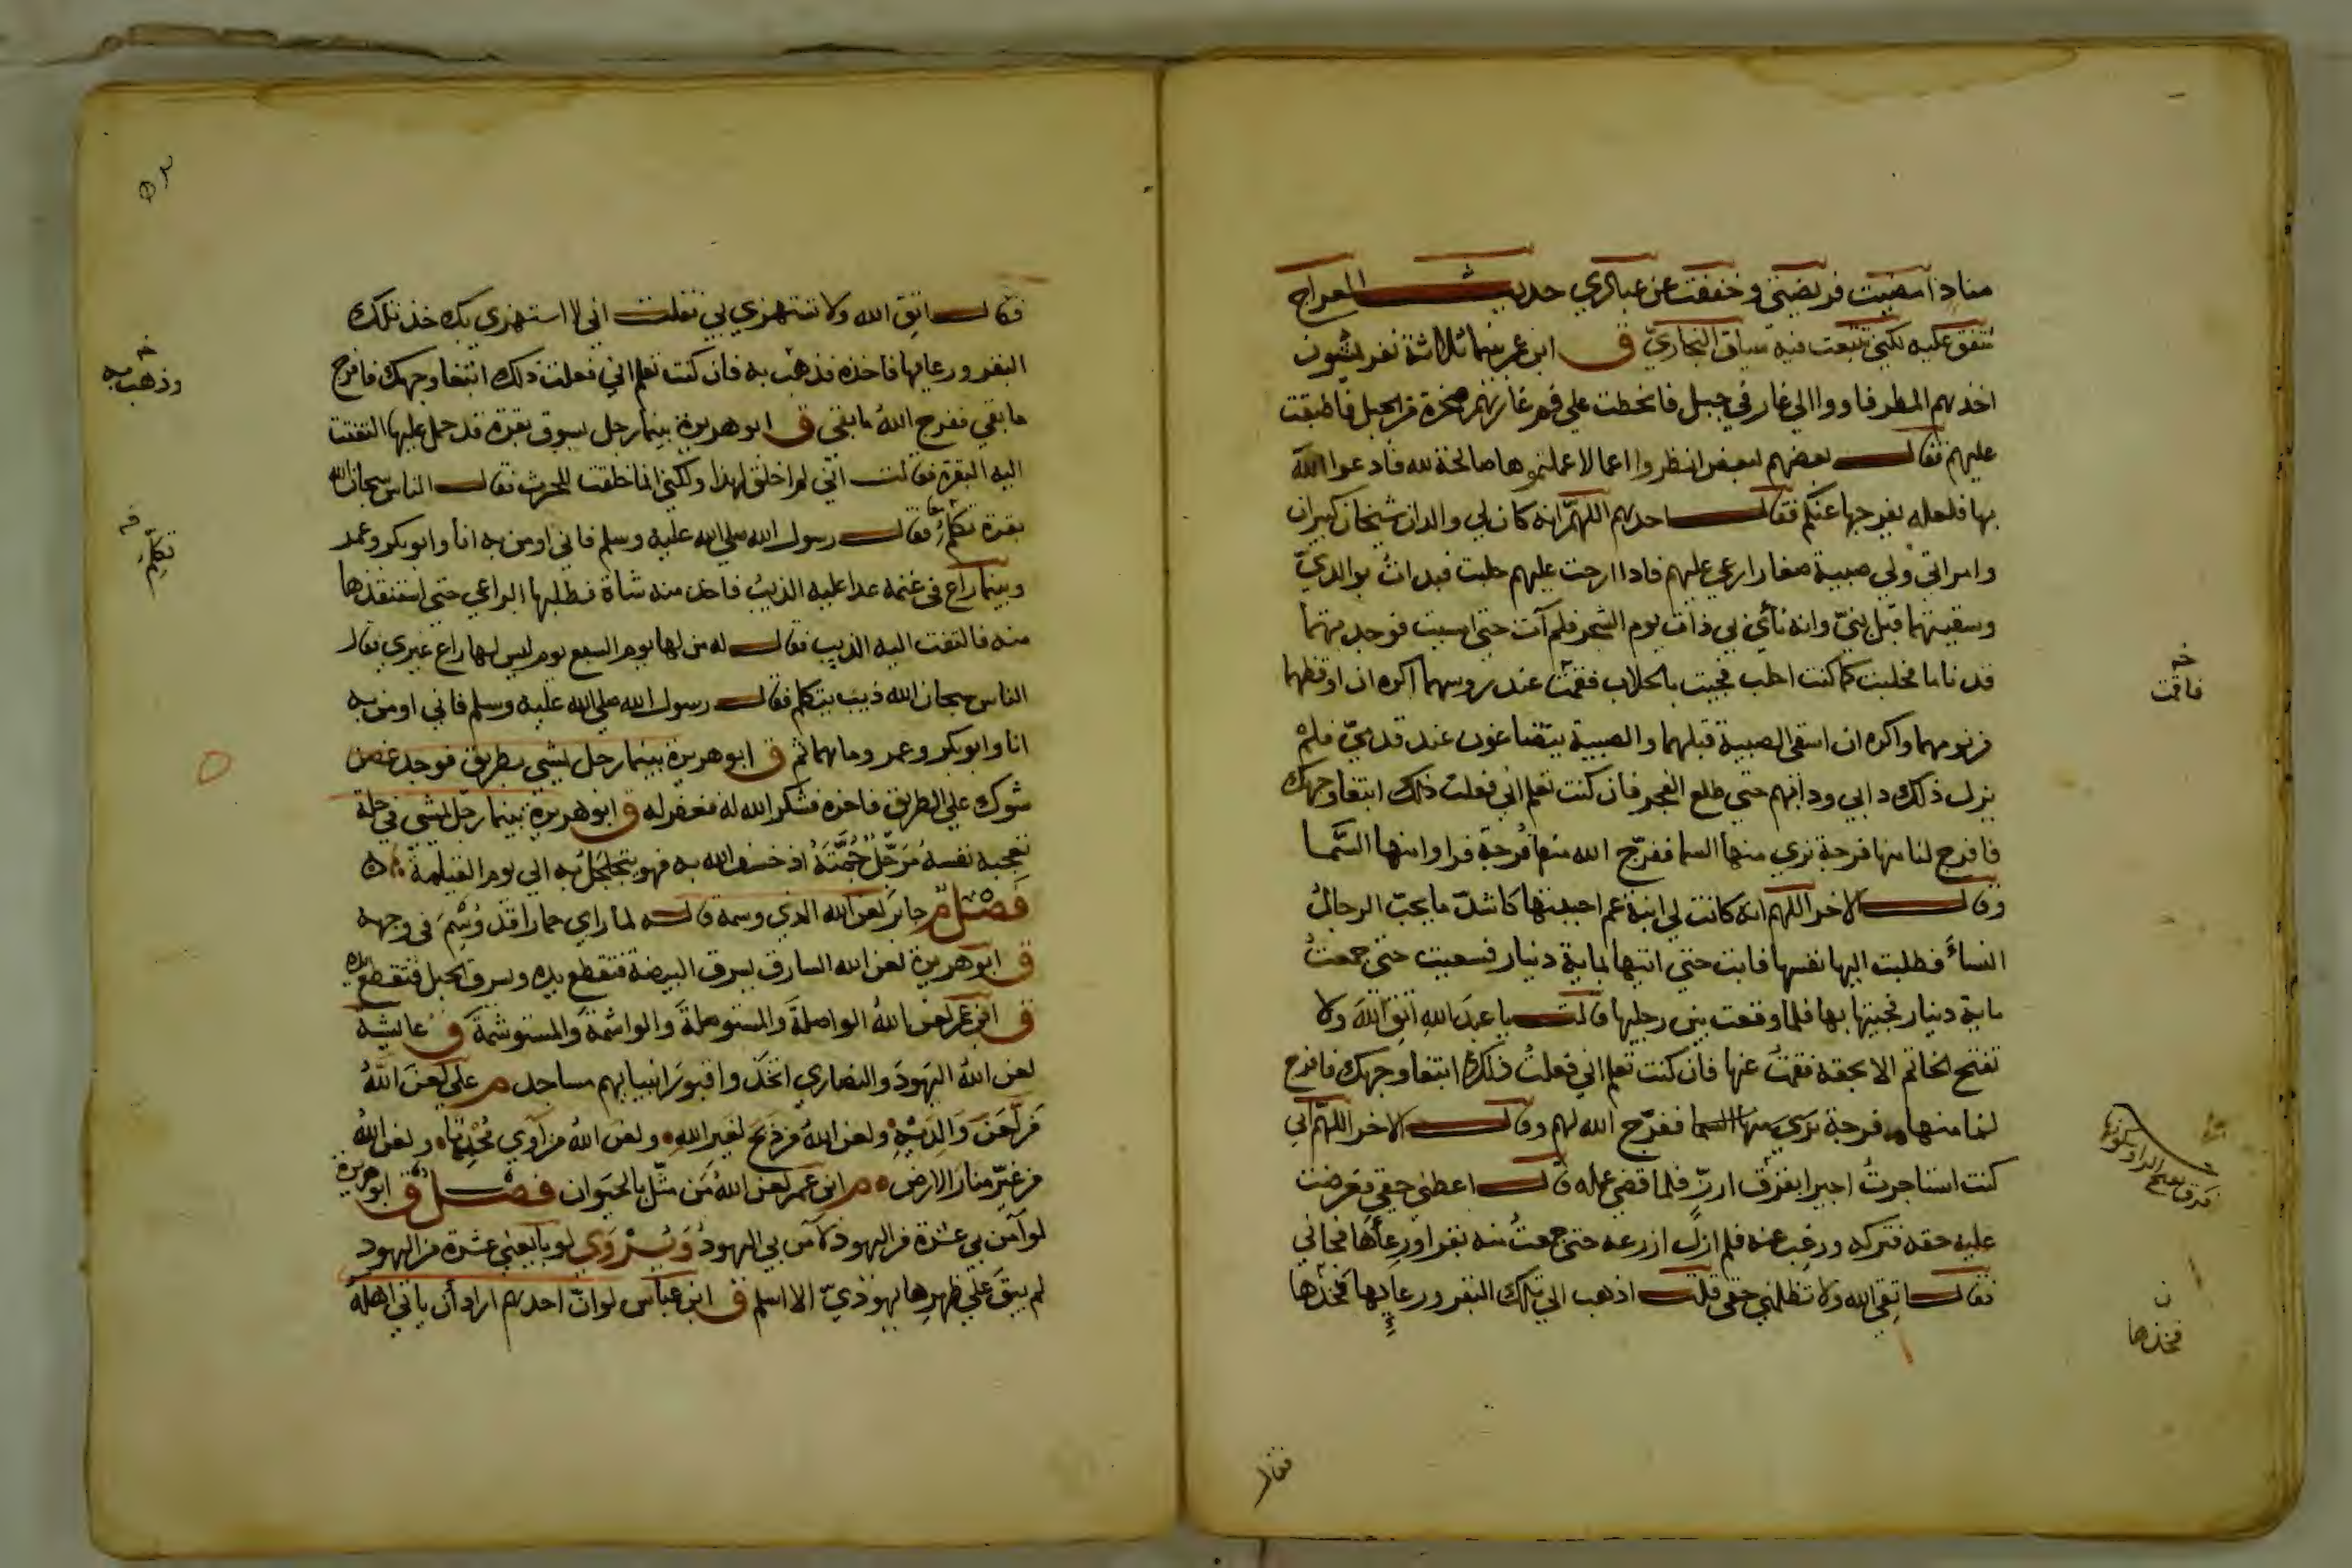 مناد امضيت فريضتي وخففت عن عبادي حديث المعراج
متفق عليه لكني تتبعت فيه سياق البخاري ق ابن عمر بينما ثلاثة نفر يمشون
اخذهم المطر فاووا الي غار في جبل فانحطت علي فم غارهم صخرة من الجبل فاطبقت
عليهم فقال بعضهم لبعض انظروا اعمالا عملتموها صالحة لله فادعوا الله
بها فلعله يفرجها عنكم فقال احدهم اللهم انه كان لي والدان شيخان كبيران
وامراتي ولي صبية صغار ارعي عليهم فاذا ارحت عليهم حلبت فبدات بوالديّ
وسقيتهما قبل بنيّ وانه نأي بي ذات يوم الشجر فلم آت حتي امسيت فوجدتهما
قد ناما فحلبت كما كنت احلب فجيت بالحلاب فقمت عند روسهما اكره ان اوقظهما
من نومهما واكره ان اسقي الصبية قبلهما والصبية يتضاغون عند قدميّ فلم
يزل ذلك دابي ودابهم حتي طلع الفجر فان كنت تعلم اني فعلت ذلك ابتغا وجهك
فافرج لنا منها فرجة نري منها السما ففرّج الله منها فُرجة فراوا منها السَّما
وقال الاخر اللهم انه كانت لي ابنة عم احببتها كاشدّ ما يحبّ الرجالُ
النساءَ فطلبت اليها نفسها فابت حتي اتيها بماية دينار فسعيت حتي جمعتُ
ماية دينار فجيتها بها فلما وقعت بين رجليها قالت يا عبدَ الله اتق اللهَ ولا
تفتح الخاتم الا بحقه فقمتُ عنها فان كنت تعلم اني فعلتُ ذلك ابتغا وجهك فافرج
لنا منها فرجة نري منها السما ففرّج الله لهم وقال الاخر اللهمّ اني
كنت استاجرتُ اجيرا بفَرَق ارزّ فلما قضي عمله قال اعطني حقي فعرضت
عليه حقه فتركه ورغب عنه فلم ازل ازرعه حتي جمعتُ منه بقرا ورعاها فجاني
فقال اتقي الله ولا تظلمني حقي قلت اذهب الي تلك البقر ورعايها فخذها
خ
فاقمت
فرق بفتح الرا وسكونها
ن
فخذها
فقال
فقال اتقِ الله ولا تستهزي بي فقلت اني لا استهزي بك خذ تلك
البقر ورعايها فاخذه فذهب به فان كنت تعلم اني فعلت ذلك ابتغا وجهك فافرج
ما بقي ففرج اللهُ ما بقي ق ابو هريرة بينما رجل يسوق بقرة قد حمل عليها التفتت
اليه البقرة فقالت اني لم اخلق لهذا ولكني انما خلقت للحرث فقال الناس سبحان الله
بقرة تكلم فقال رسول الله صلي الله عليه وسلم فاني اومن به انا وابو بكر وعمر
وبينما راع في غنمه عدا عليه الذيب فاخذ منه شاة فطلبها الراعي حتي استنقذها
منه فالتفت اليه الذيب فقال له من لها يوم السبع يوم ليس لها راع غيري فقال
الناس سبحان الله ذيب يتكلم فقال رسول الله صلي الله عليه وسلم فاني اومن به
انا وابو بكر وعمر وما هما ثم ق ابو هريرة بينما رجل يمشي بطريق فوجد غصن
شوك علي الطريق فاخره فشكر الله له فغفر له ق ابو هريرة بينما رجل يمشي في حلة
تعجبه نفسهُ مُرَجِّل جُمَّتَهُ اذ خسف الله به فهو يتجلجل به الي يوم القيامة
فصل م جابر لعن الله الذي وسمه قاله لما راي حمارا قد وُسِمَ في وجهه
ق ابو هريرة لعن الله السارق يسرق البيضة فتقطع يده ويسرق الحبل فتقطع يده
ق ابن عمر لعن اللهُ الواصلةَ والمستوصلةَ والواشمةَ والمستوشمةَ ق عايشة
لعن اللهُ اليهودَ والنصاري اتخذوا قبورَ انبيايهم مساجد م علي لعنَ اللهُ
مَن لَعَنَ وَالِدَيْهِ ولعن اللهُ من ذبح لغير الله ولعن اللهُ من آوي مُحْدِثا ولعن اللهُ
من غيّر منار الارض م ابن عمر لعن اللهُ مَن مثّل بالحيوان فصل ق ابو هريرة
لو آمن بي عشرة من اليهود لآمن بي اليهودُ وَيُرْوَي لو بايعني عشرة من اليهود
لم يبقَ علي ظهرها يهوديّ الا اسلم ق ابن عباس لو انّ احدهم اراد أن ياتي اهله
خ
وذهب به
تكلّم